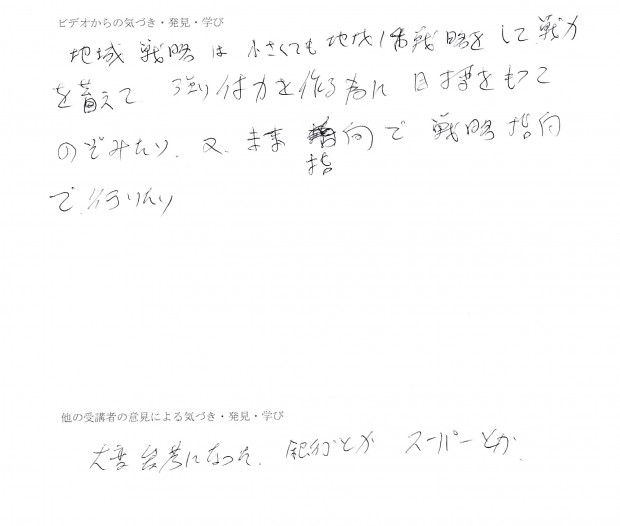 ビデオからの気づき・発見・学び
地域戦略は小さくても地域1番戦略をして戦力
を蓄えて 強い体力を作る為に目標をもって
のぞみたい、又、未来指向で戦略指向
で行いたい
他の受講者の意見による気づき・発見・学び
大変参考になった。銀行とか スーパーとか